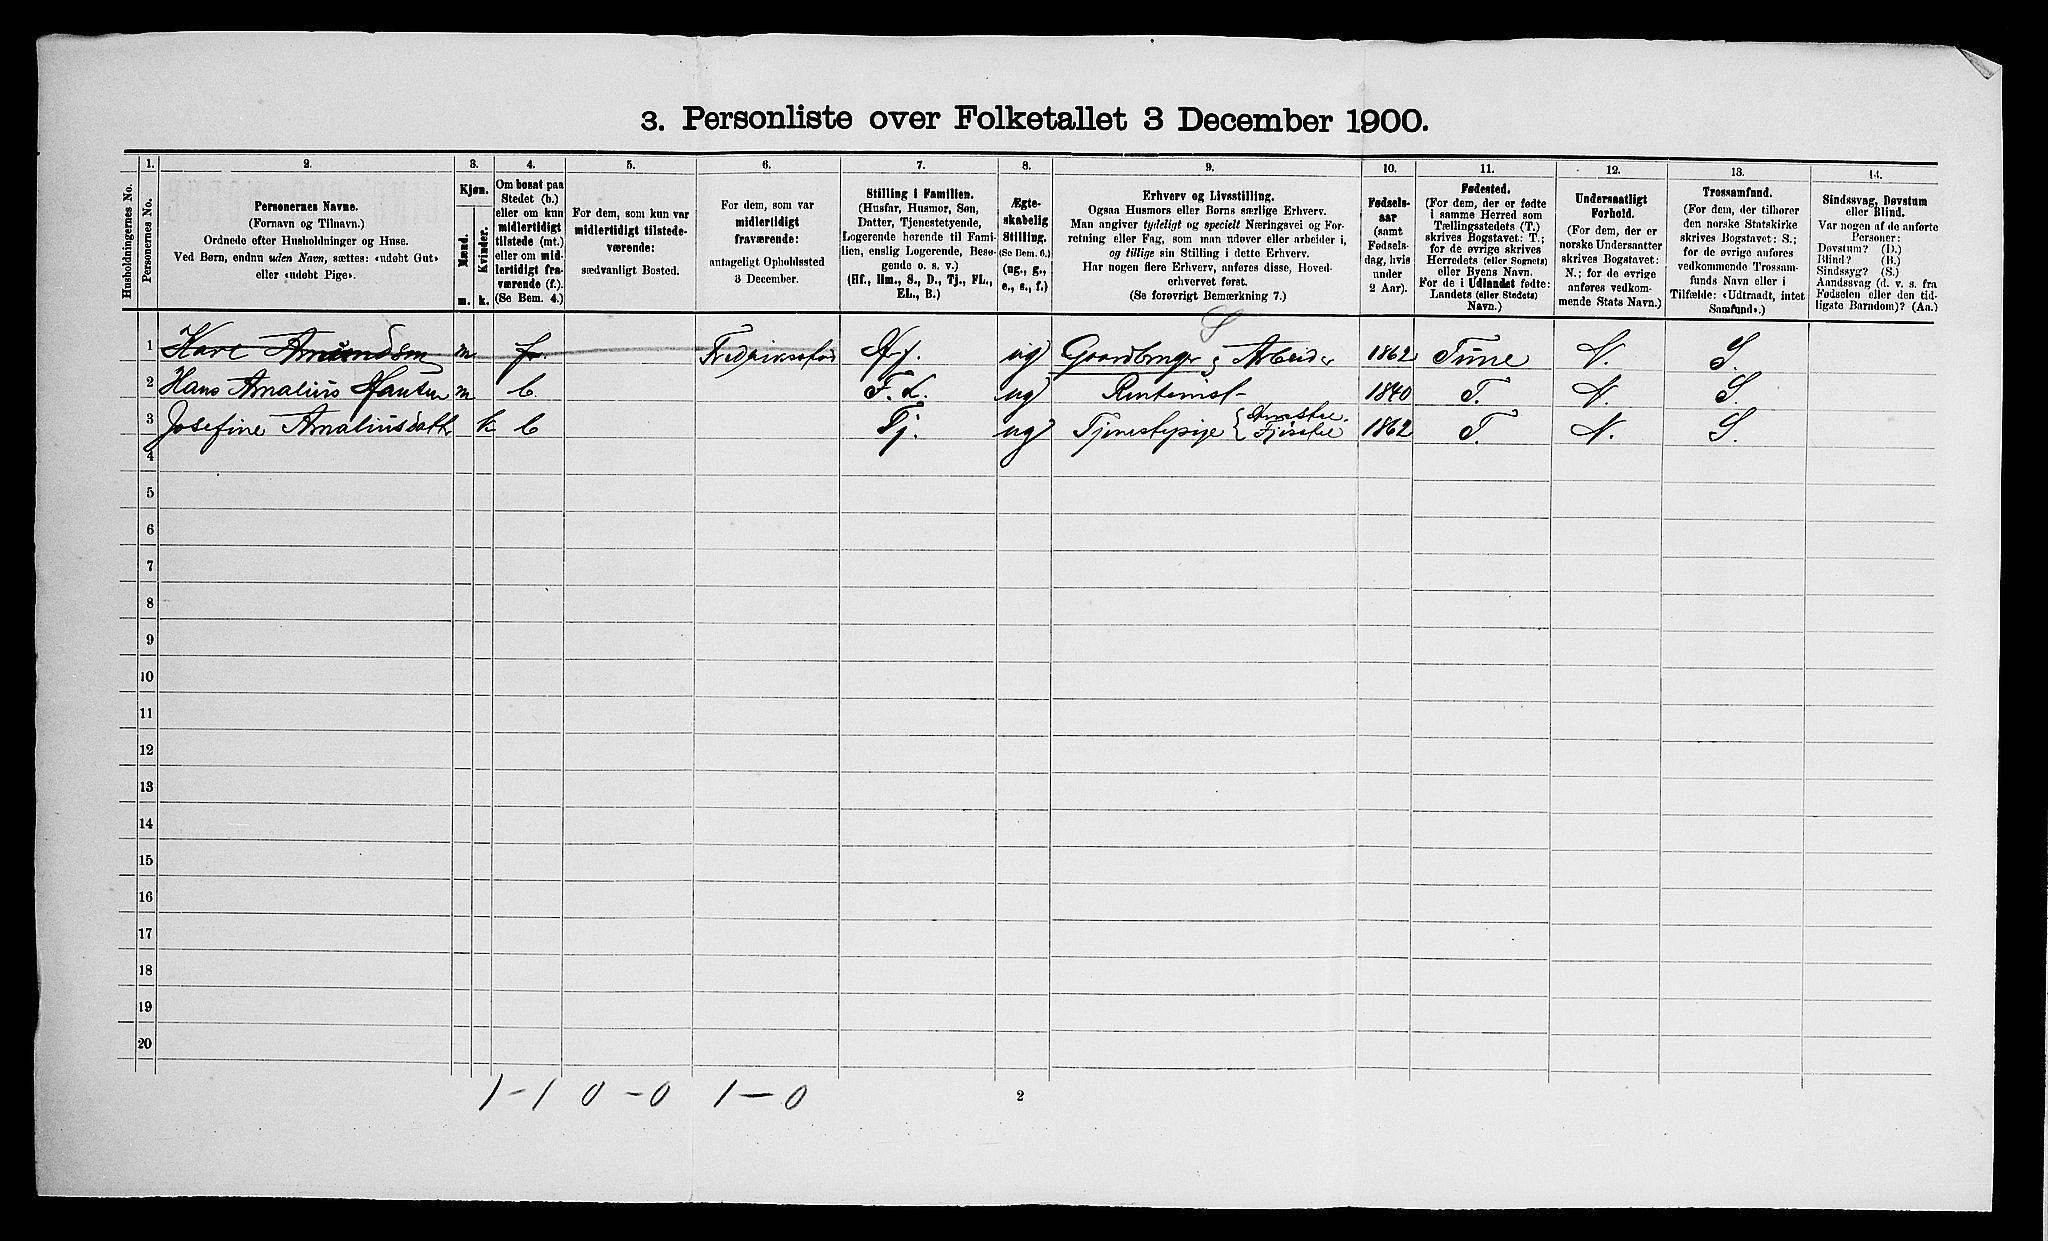 3. Personliste over Folketallet 3 December 1900.
Husholdningernes No.
1. Personernes No.
2. Personernes Navne.
(Fornavn og Tilnavn.)
Ordnede efter Husholdninger og Huse.
Ved Børn, endnu uden Navn, sættes: «udøbt Gut»
eller «udøbt Pige».
3. Kjøn.
Mænd. Kvinder.
m. k.
4. Om bosat paa
Stedet (b.)
eller om kun
midlertidigt
tilstede (mt.)
eller om mid-
lertidigt fra-
værende (f.).
(Se Bem. 4.)
5. For dem, som kun var
midlertidigt tilstede-
værende:
sædvanligt Bosted.
6. For dem, som var
midlertidigt
fraværende:
antageligt Opholdssted
3 December.
7. Stilling i Familien.
(Husfar, Husmor, Søn,
Datter, Tjenestetyende,
Logerende hørende til Fami-
lien, enslig Logerende, Besø-
gende o. s. v.)
(Hf., Hm., S., D., Tj., FL.,
EL., B.)
8. Ægte-
skabelig
Stilling.
(Se Bem. 6.)
(ug., g.,
e., s., f.)
9. Erhverv og Livsstilling.
Ogsaa Husmors eller Børns særlige Erhverv.
Man angiver tydeligt og specielt Næringsvei og For-
retning eller Fag, som man udøver eller arbeider i,
og tillige sin Stilling i dette Erhverv.
Har nogen flere Erhverv, anføres disse, Hoved-
erhvervet først.
(Se forøvrigt Bemærkning 7.)
10. Fødsels-
aar
(samt
Fødsels-
dag, hvis
under
2 Aar).
11. Fødested.
(For dem, der er fødte
i samme Herred som
Tællingsstedets (T.)
skrives Bogstavet: T.;
for de øvrige skrives
Herredets (eller Sognets)
eller Byens Navn.
For de i Udlandet fødte:
Landets (eller Stedets)
Navn.)
12. Undersaatligt
Forhold.
(For dem, der er
norske Undersaatter
skrives Bogstavet:
N.; for de øvrige
anføres vedkom-
mende Stats Navn.)
13. Trossamfund.
(For dem, der tilhører
den norske Statskirke
skrives Bogstavet: S.;
for de øvrige anføres
vedkommende Trossam-
funds Navn eller i
Tilfælde: «Udtraadt, intet
Samfund».)
14. Sindssvag, Døvstum
eller Blind.
Var nogen af de anførte
Personer:
Døvstum? (D.)
Blind? (B.)
Sindssyg? (S.)
Aandssvag (d. v. s. fra
Fødselen eller den tid-
ligste Barndom)? (Aa.)
1 Amundsen m f Hf. ug Gaardbruger Arbeider 1862 Tune N. S.
2 Hans Amalius Hansen m b F. L. ug Rentenist 1840 T. N. S.
3 Josefine Amaliusdatt k b Tj. ug Tjenestepige 1862 T. N. S.
4
5
6
7
8
9
10
11
12
13
14
15
16
17
18
19
20
1-1 0-0 1-0
2